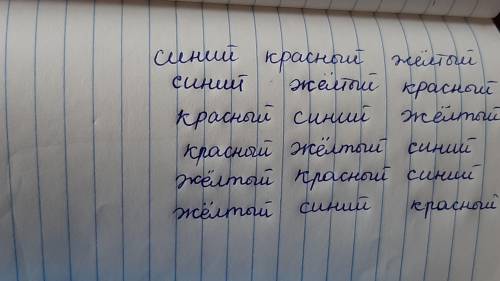 синий красный жёлтый
синий жёлтый красный
красный синий жёлтый
красный жёлтый синий
жёлтый красный синий
жёлтый синий красный